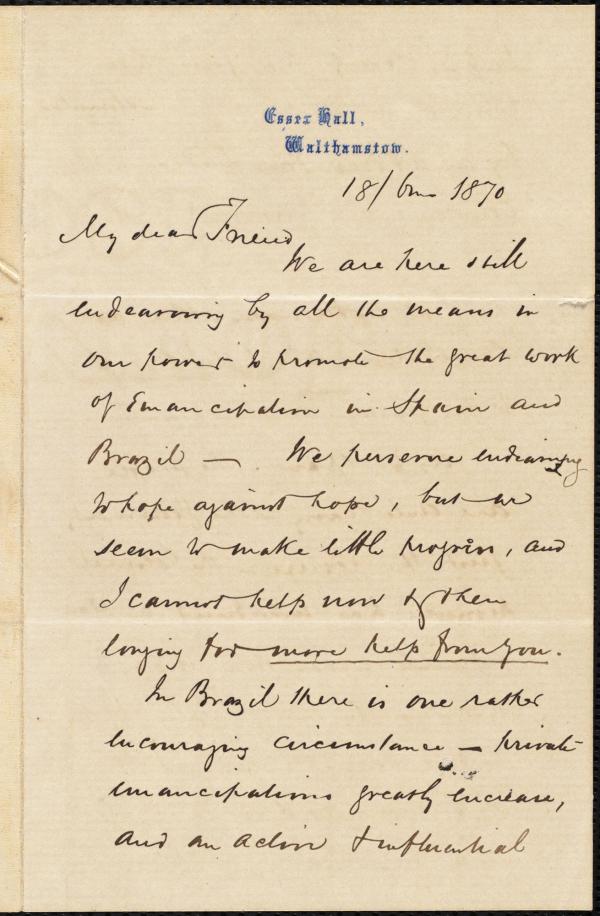 Essex Hall,
Walthamstow.
18/6mo 1870
My dear Friend
We are here still
endeavouring by all the means in
our power to promote the great work
of Emancipation in Spain and
Brazil — We persevere endeavouring
to hope against hope, but we
seem to make little progress, and
I cannot help now & then
longing for more help from you.
In Brazil there is one rather
encouraging circumstance — private
emancipations greatly increase,
and an active & influential